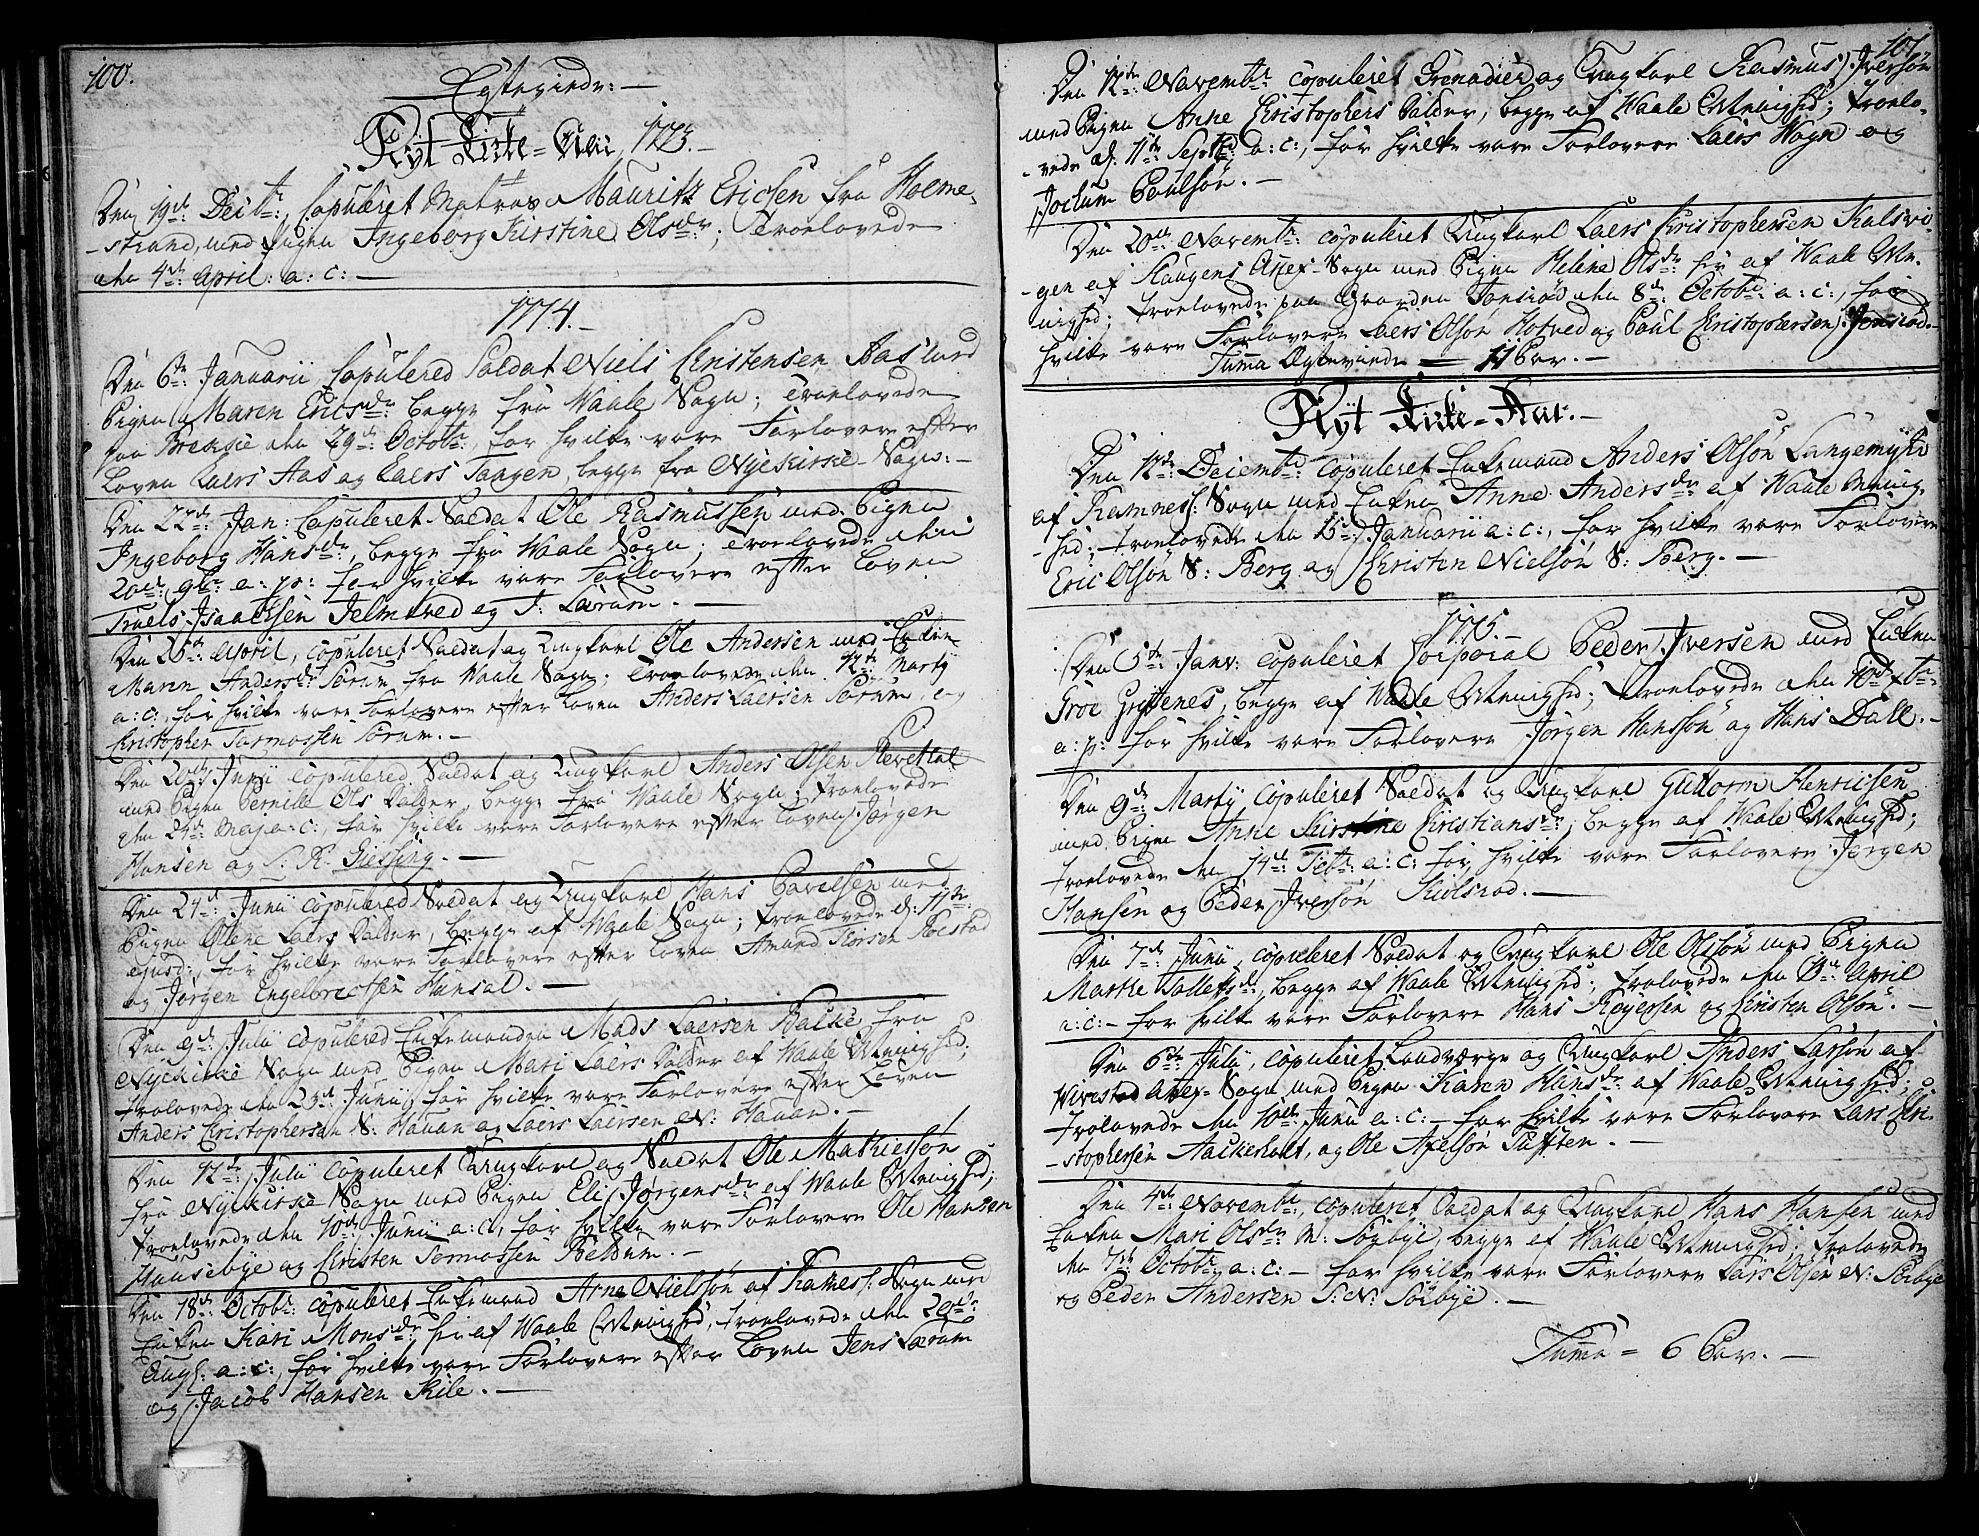 100.
Egteviede: —
Nÿt Kirke-Aar 1773. —
Den 19de Decbr: Copuleret Matros Mauritz Ericsen fra Holme-
-strand, med Pigen Ingeborg Kirstine Olsdr; Troelovede
den 4de April: a: c: —
1774. —
Den 6te Januarii, Copulered Soldat Niels Christensen Aas med
Pigen Maren Ericsdr begge fra Waale Sogn; Troelovede
paa den 29de Octobr, for hvilke vare Forlovere efter
Loven Laers Aas og Laers Tangen, begge fra Nyekirke-Sogn: —
Den 22de Jan: Copuleret Soldat Ole Rasmussen med Pigen
Ingeborg Hansdr, begge fra Waale Sogn; Troelovede den
20de 9br a: p: for hvilke vare Forlovere efter Loven
Truels Isaachsen Jelmtved og J: Lærum. —
Den 26de April, copuleret Soldat og Ungkarl Ole Andersen med Enken
Maren Andersdr Sørum fra Waale Sogn; Troelovede den 12te Martÿ
a: c:, for hvilke vare Forlovere efter Loven Anders Laersen Sørum, og
Christopher Tarmossen Sørum. —
Den 20de Junii copulered Soldat og Ungkarl Anders Olsen Revettal
med Pigen Pernille Ols Datter, begge fra Waale Sogn; Troelovede
den 24de Maj a: c:, for hvilke vare Forlovere efter Loven Jørgen
Hansen og S: R. Giessing. —
Den 24de Junii copulered Soldat og Ungkarl Hans Povelsen med
Pigen Ollene Laers Datter, begge af Waale Sogn; troelovede d: 11te
ejusd:, for hvilke vare Forlovere efter Loven Amund Thorsen Roestad
og Jørgen Engelbrectsen Hansal. —
Den 9de Julii copulered Enkemanden Mads Laersen Bakke fra
Nyekirke Sogn med Pigen Mari Laers Datter af Waale Menighed;
trolovede den 23de Junii, for hvilke vare Forlovere efter Loven
Anders Christophersen S: Hauan og Laers Laersen N: Hauan. —
Den 12te Julii copuleret Ungkarl og Soldat Ole Mathielsøn
fra Nyekirke Sogn med Pigen Eli Jørgensdr af Waale Menighed;
troelovede den 10de Junii a: c:, for hvilke vare Forlovere Ole Hansen
Hausebye og Christen Tormossen Beldum. —
Den 18de Octobr: copuleret Enkemand Arne Nielsøn af Ramnes: Sogn med
Enken Kari Monsdr her af Waale Menighed, troelovede den 20de
Aug: a: c:, for hvilke vare Forlovere efter Loven Jens Lærum
og Jacob Hansen Kile. —
101.
Den 12te Novembr copuleret Grenadier og Ungkarl Rasmus Iversøn
med Pigen Anne Christophers Datter, begge af Waale Menighed; troelo-
-vede d: 11te Sept: a: c:, for hvilke vare Forlovere Laers Wogn og
Jochum Poulsøn. —
Den 20de Novembr: copuleret Ungkarl Laers Christophersen Kalsvi-
-gen af Haugens Anex-Sogn med Pigen Helene Olsdr her af Waale Me-
nighed; troelovede paa Gaarden Jonsrød den 8de Octobr: a: c:, for
hvilke vare Forlovere Laers Olsøn Hotved og Poul Christophersen Jonsrød. —
Suma Egteviede = 11 Par. —
Nÿt Kirke-Aar. —
Den 12te Decembr copuleret Enkemand Anders Olsøn Langemyhr
af Ramnes: Sogn med Enken Anne Andersdr af Waale Menig-
-hed; troelovede den 15de Januarii a: c:, for hvilke vare Forlovere
Eric Olsøn S: Berg og Christen Nielsøn S: Berg. —
1775. —
Den 5te Janv: copuleret Corporal Peder Iversen med Enken
Groe Grettenes, begge af Waale Menighed; Troelovede den 10de Xbr
a: p: for hvilke vare Forlovere Jørgen Hanssøn og Hans Dall. —
Den 9de Martÿ copuleret Soldat og Ungkarl Guttorm Henricsen
med Pigen Anne Christiansdr, begge af Waale Menighed;
troelovede den 14de Febr: a: c: for hvilke vare Forlovere Jørgen
Hansen og Peder Iversøn Kiølsrød. —
Den 7de Junii, copuleret Soldat og Ungkarl Ole Olssøn med Pigen
Marthe Tollefsdr, begge af Waale Menighed; trolovede den April
a: c: — for hvilke vare Forlovere Hans Røyersen og Christen Olsøn. —
Den 6te Julii, copuleret Landværge og Ungkarl Anders Larsøn af
Wivestad Anex-Sogn med Pigen Karen Hansdr af Waale Menighed;
trolovede den 10de Junii a: c: — for hvilke vare Forlovere Lars Chri-
-stophersen Aackesholt, og Ole Axelsøn Tufften. —
Den 4de Novembr, copuleret Soldat og Ungkarl Hans Hansen med
Enken Mari Olsdr N: Sørbye, begge af Waale Menighed; trolovede
den 7de Octobr a: c: — for hvilke vare Forlovere Lars Olsen N: Sørbye
og Peder Andersen S: N: Sørbye. —
Suma = 6 Par. —